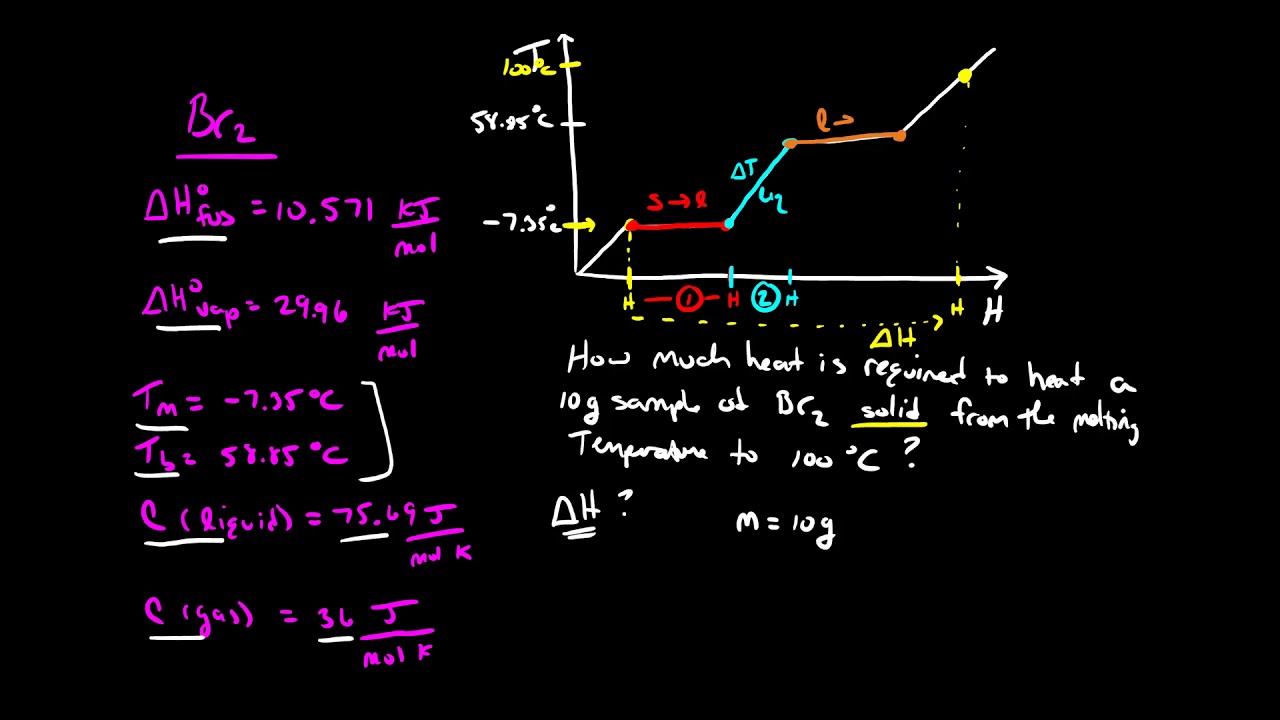 Br₂
ΔH°fus = 10.571 kJ/mol
ΔH°vap = 29.96 kJ/mol
Tm = -7.35°C
Tb = 58.85°C
C (liquid) = 75.69 J/mol K
C (gas) = 36 J/mol K
T
100°C
58.85°C
-7.35°C
S→l
ΔT
Liq
l→
H — ① — H ② H H
H
ΔH
How much heat is required to heat a
10g sample of Br₂ solid from the melting
Temperature to 100°C?
ΔH?
m = 10g